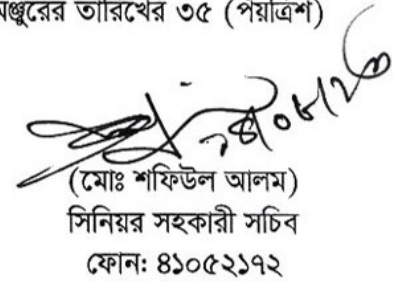 মঞ্জুরের তারিখের ৩৫ (পঁয়ত্রিশ)
(মোঃ শফিউল আলম)
সিনিয়র সহকারী সচিব
ফোনঃ ৪১০৫২১৭২